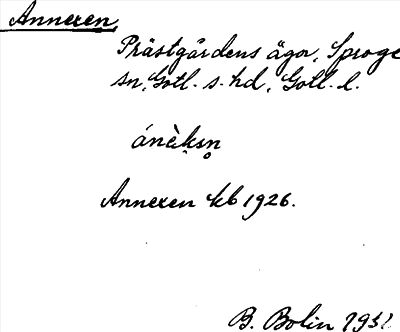 Annexen
Prästgårdens ägor, Sproge
sn, Gotl. s. hd, Gotl. l.
ánèksn̥
Annexen kb 1926.
B. Bolin